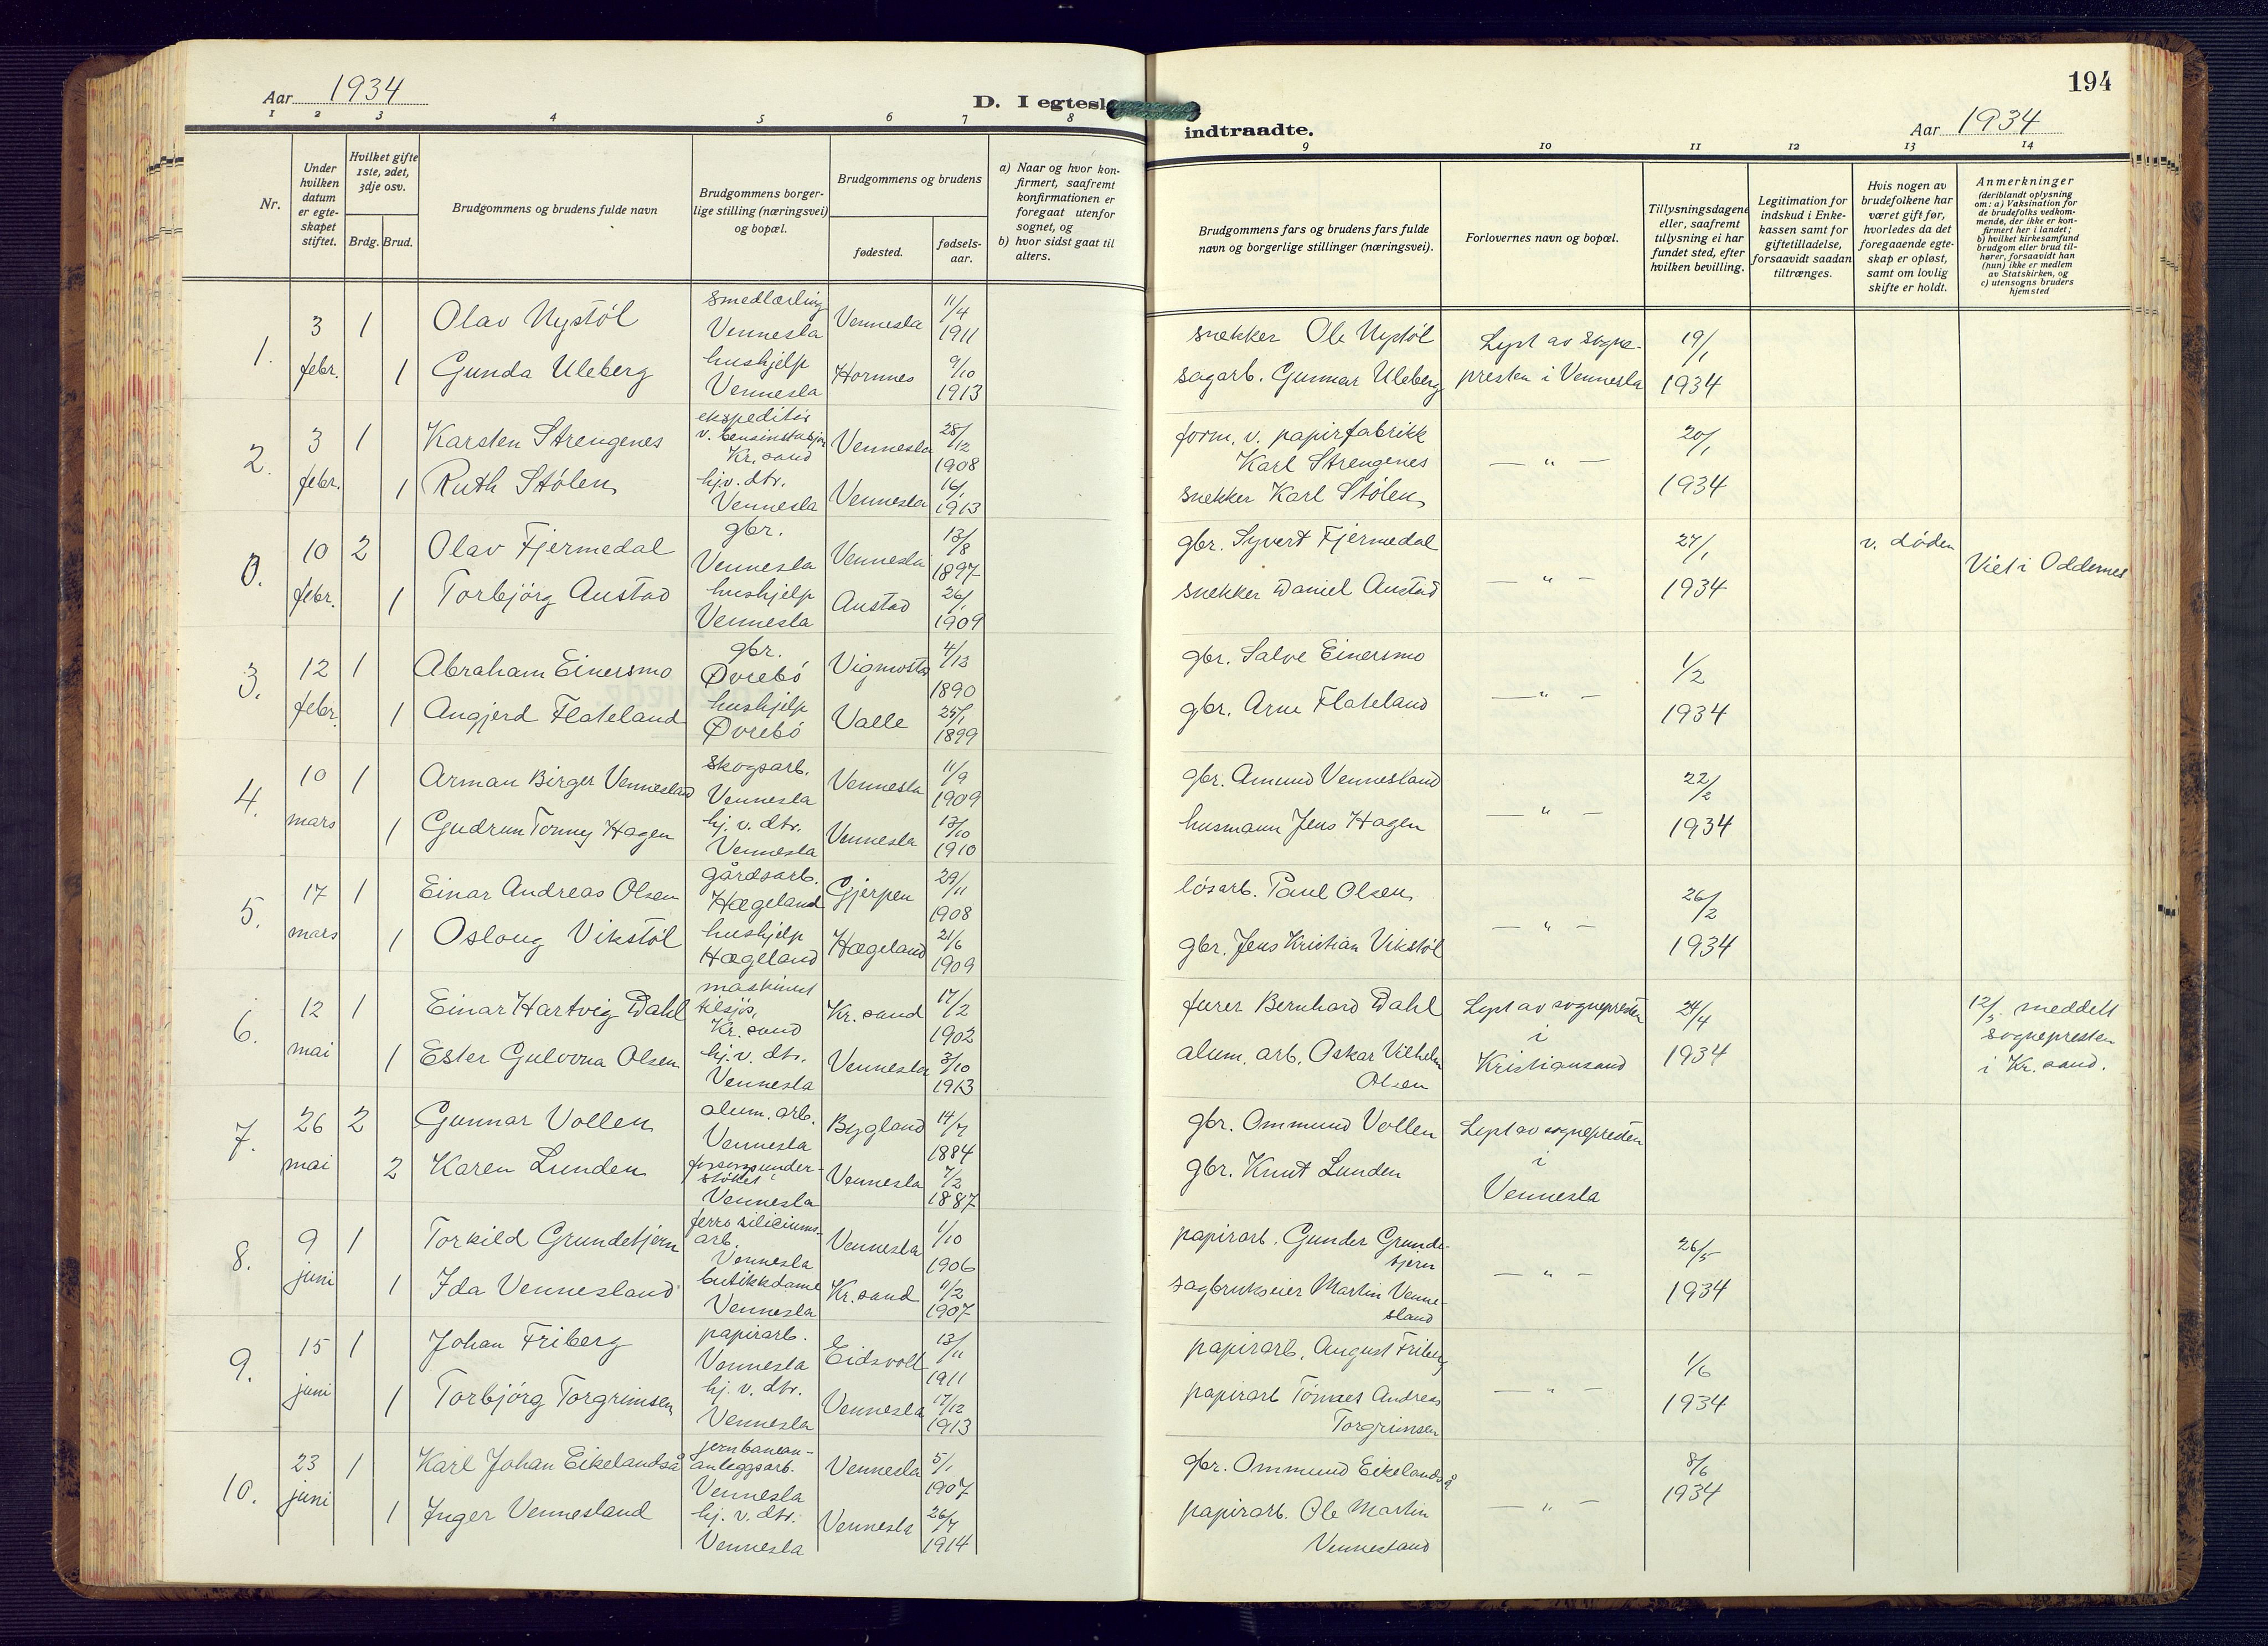 Aar 1934
D. I egtesk
1 2 3 4 5 6 7 8
Nr.
Under hvilken datum er egteskapet stiftet.
Hvilket gifte 1ste, 2det, 3dje osv.
Brdg. Brud.
Brudgommens og brudens fulde navn
Brudgommens borgerlige stilling (næringsvei) og bopæl.
Brudgommens og brudens
fødested.
fødselsaar.
a) Naar og hvor konfirmert, saafremt konfirmationen er foregaat utenfor sognet, og
b) hvor sidst gaat til alters.
1. 3 febr. 1 Olav Nystøl smedlærling Vennesla Vennesla 11/4 1911
1 Gunda Uleberg hushjelp Vennesla Hornnes 9/10 1913
2. 3 febr. 1 Karsten Strengenes ekspeditør v. bensinstasjon Kr. sand Vennesla 28/12 1908
1 Ruth Stølen hj.v. dtr. Vennesla Vennesla 16/1 1913
0. 10 febr. 2 Olav Fjermedal gbr. Vennesla Vennesla 13/8 1897
1 Torbjörg Austad hushjelp Vennesla Austad 26/1 1909
3. 12 febr. 1 Abraham Einersmo gbr. Øvrebö Vigmostad 1890
1 Angjerd Flateland hushjelp Øvrebö Valle 25/1 1899
4. 10 mars 1 Arman Birger Vennesland skogsarb. Vennesla Vennesla 11/9 1909
1 Gudrun Tonny Hagen hj. v. dtr. Vennesla Vennesla 13/10 1910
5. 17 mars 1 Einar Andreas Olsen gårdsarb. Hægeland Gjerpen 29/11 1908
1 Oslaug Vikstøl hushjelp Hægeland Hægeland 21/6 1909
6. 12 mai 1 Einar Hartvig Dahl maskinist tilsjøs, Kr. sand Kr. sand 17/2 1902
1 Ester Gulovna Olsen hj.v. dtr. Vennesla Vennesla 3/10 1913
7. 26 mai 2 Gunnar Vollen alum. arb. Vennesla Bygland 14/7 1884
2 Karen Lunden forsorgsunderstøttet Vennesla Vennesla 7/2 1887
8. 9 juni 1 Torkild Grundetjern ferrosiliciumsarb. Vennesla Vennesla 1/10 1906
1 Ida Vennesland butikkdame Vennesla Kr. sand 11/2 1907
9. 15 juni 1 Johan Friberg papirarb. Vennesla Eidsvoll 13/11 1911
1 Torbjörg Torgrimsen hj. v. dtr. Vennesla Vennesla 17/12 1913
10. 23 juni 1 Karl Johan Eikelandså jernbaneanleggsarb. Vennesla Vennesla 5/1 1907
1 Inger Vennesland hj. v. dtr. Vennesla Vennesla 26/7 1914
194
indtraadte.
Aar 1934
9 10 11 12 13 14
Brudgommens fars og brudens fars fulde navn og borgerlige stillinger (næringsvei).
Forlovernes navn og bopæl.
Tillysningsdagene eller, saafremt tillysning ei har fundet sted, efter hvilken bevilling.
Legitimation for indskud i Enkekassen samt for giftetilladelse, forsaavidt saadan tiltrænges.
Hvis nogen av brudefolkene har været gift før, hvorledes da det foregaaende egteskap er opløst, samt om lovlig skifte er holdt.
Anmerkninger
(deriblandt oplysning om: a) Vaksination for de brudefolks vedkommende, der ikke er konfirmert her i landet;
b) hvilket kirkesamfund brudgom eller brud tilhører, forsaavidt han (hun) ikke er medlem av Statskirken, og
c) utensogns bruders hjemsted
snekker Ole Nystøl Lyst av sogne- 19/1
sagarb. Gunnar Uleberg presten i Vennesla 1934
form. v. papirfabrikk 20/1
Karl Strengenes — " —
snekker Karl Stølen 1934
gbr. Syvert Fjermedal 27/1 v. døden
— " — Viet i Oddernes
snekker Daniel Austad 1934
gbr. Salve Einersmo 1/2
gbr. Arne Flateland — " — 1934
gbr. Amund Vennesland 22/2
husmann Jens Hagen — " — 1934
løsarb. Paul Olsen 26/2
— " —
gbr. Jens Kristian Vikstøl 1934
furer Bernhard Dahl Lyst av sognepresten 24/4 12/5 meddelt
i sognepresten
alum. arb. Oskar Vilhelm Kristiansand 1934 i Kr. sand.
Olsen
gbr. Ommund Vollen Lyst av sognepresten
i
gbr. Knut Lunden Vennesla
papirarb. Gunder Grunde-
tjern 26/5
— " —
sagbrukseier Martin Venne- 1934
sland
papirarb. August Friberg 1/6
papirarb Tømaes Andreas — " — 1934
Torgrimsen
gbr. Ommund Eikelandså 8/6
papirarb. Ole Martin — " — 1934
Vennesland